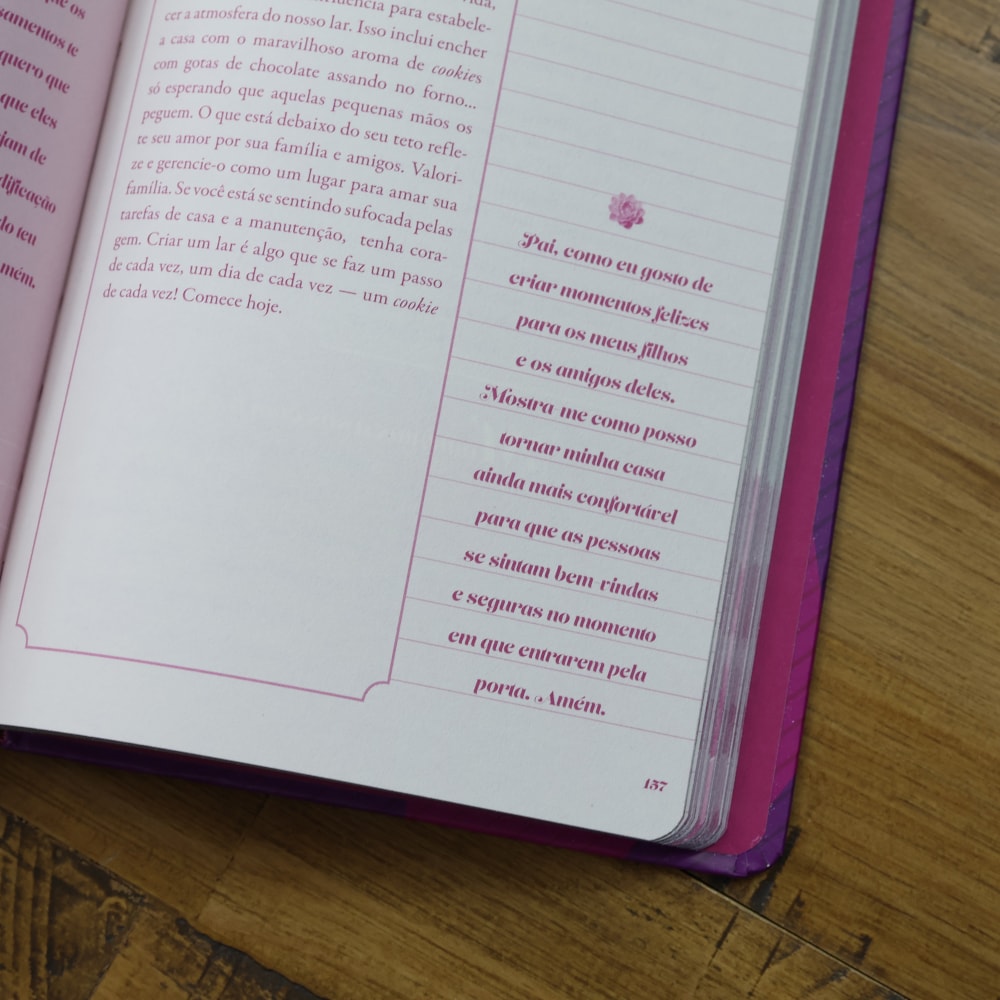 os
samentos te
quero que
que eles
jam de
dificação
do teu
mém.
para estabele-
cer a atmosfera do nosso lar. Isso inclui encher
a casa com o maravilhoso aroma de cookies
com gotas de chocolate assando no forno...
só esperando que aquelas pequenas mãos os
peguem. O que está debaixo do seu teto refle-
te seu amor por sua família e amigos. Valori-
ze e gerencie-o como um lugar para amar sua
família. Se você está se sentindo sufocada pelas
tarefas de casa e a manutenção, tenha cora-
gem. Criar um lar é algo que se faz um passo
de cada vez, um dia de cada vez — um cookie
de cada vez! Comece hoje.
Pai, como eu gosto de
criar momentos felizes
para os meus filhos
e os amigos deles.
Mostra-me como posso
tornar minha casa
ainda mais confortável
para que as pessoas
se sintam bem-vindas
e seguras no momento
em que entrarem pela
porta. Amém.
157